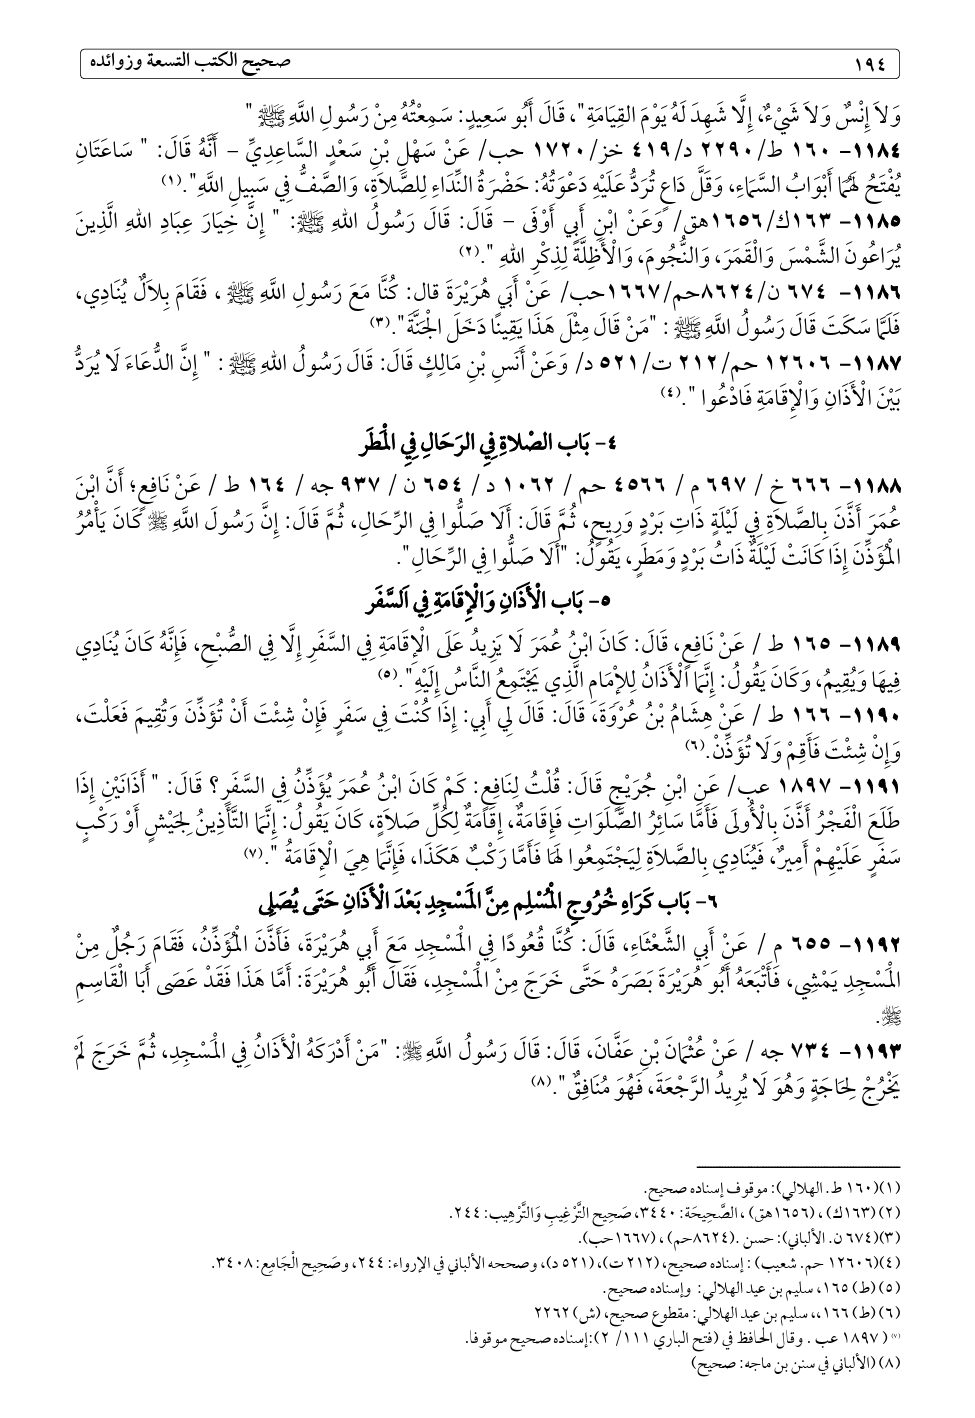 ١٩٤
صحيح الكتب التسعة وزوائده
وَلاَ إِنْسٌ وَلاَ شَيْءٌ، إِلَّا شَهِدَ لَهُ يَوْمَ القِيَامَةِ"، قَالَ أَبُو سَعِيدٍ: سَمِعْتُهُ مِنْ رَسُولِ اللَّهِ ﷺ "
١١٨٤- ١٦٠ ط/ ٢٢٩٠ د/ ٤١٩ خز/ ١٧٢٠ حب/ عَنْ سَهْلِ بْنِ سَعْدٍ السَّاعِدِيِّ – أَنَّهُ قَالَ: " سَاعَتَانِ
يُفْتَحُ لَهُمَا أَبْوَابُ السَّمَاءِ، وَقَلَّ دَاعٍ تُرَدُّ عَلَيْهِ دَعْوَتُهُ: حَضْرَةُ النِّدَاءِ لِلصَّلاَةِ، وَالصَّفُّ فِي سَبِيلِ اللَّهِ".(١)
١١٨٥- ١٦٣ك/ ١٦٥٦هق/ وَعَنْ ابْنِ أَبِي أَوْفَى – قَالَ: قَالَ رَسُولُ اللهِ ﷺ: " إِنَّ خِيَارَ عِبَادِ اللهِ الَّذِينَ
يُرَاعُونَ الشَّمْسَ وَالْقَمَرَ، وَالنُّجُومَ، وَالْأَظِلَّةَ لِذِكْرِ اللهِ ".(٢)
١١٨٦- ٦٧٤ ن/ ٨٦٢٤حم/ ١٦٦٧حب/ عَنْ أَبِي هُرَيْرَةَ قال: كُنَّا مَعَ رَسُولِ اللَّهِ ﷺ ، فَقَامَ بِلاَلٌ يُنَادِي،
فَلَمَّا سَكَتَ قَالَ رَسُولُ اللَّهِ ﷺ : "مَنْ قَالَ مِثْلَ هَذَا يَقِينًا دَخَلَ الْجَنَّةَ".(٣)
١١٨٧- ١٢٦٠٦ حم/ ٢١٢ ت/ ٥٢١ د/ وَعَنْ أَنَسِ بْنِ مَالِكٍ قَالَ: قَالَ رَسُولُ اللهِ ﷺ : " إِنَّ الدُّعَاءَ لَا يُرَدُّ
بَيْنَ الْأَذَانِ وَالْإِقَامَةِ فَادْعُوا ".(٤)
٤- بَاب الصَّلاةِ فِي الرِّحَالِ فِي الْمَطَر
١١٨٨- ٦٦٦ خ / ٦٩٧ م / ٤٥٦٦ حم / ١٠٦٢ د / ٦٥٤ ن / ٩٣٧ جه / ١٦٤ ط / عَنْ نَافِعٍ؛ أَنَّ ابْنَ
عُمَرَ أَذَّنَ بِالصَّلاَةِ فِي لَيْلَةٍ ذَاتِ بَرْدٍ وَرِيحٍ، ثُمَّ قَالَ: أَلَا صَلُّوا فِي الرِّحَالِ، ثُمَّ قَالَ: إِنَّ رَسُولَ اللَّهِ ﷺ كَانَ يَأْمُرُ
الْمُؤَذِّنَ إِذَا كَانَتْ لَيْلَةٌ ذَاتُ بَرْدٍ وَمَطَرٍ، يَقُولُ: "أَلَا صَلُّوا فِي الرِّحَالِ".
٥- بَاب الْأَذَانِ وَالْإِقَامَةِ فِي السَّفَر
١١٨٩- ١٦٥ ط / عَنْ نَافِعٍ، قَالَ: كَانَ ابْنُ عُمَرَ لَا يَزِيدُ عَلَى الْإِقَامَةِ فِي السَّفَرِ إِلَّا فِي الصُّبْحِ، فَإِنَّهُ كَانَ يُنَادِي
فِيهَا وَيُقِيمُ، وَكَانَ يَقُولُ: إِنَّمَا الْأَذَانُ لِلإِمَامِ الَّذِي يَجْتَمِعُ النَّاسُ إِلَيْهِ".(٥)
١١٩٠- ١٦٦ ط / عَنْ هِشَامُ بْنُ عُرْوَةَ، قَالَ: قَالَ لِي أَبِي: إِذَا كُنْتَ فِي سَفَرٍ فَإِنْ شِئْتَ أَنْ تُؤَذِّنَ وَتُقِيمَ فَعَلْتَ،
وَإِنْ شِئْتَ فَأَقِمْ وَلَا تُؤَذِّنْ.(٦)
١١٩١- ١٨٩٧ عب/ عَنِ ابْنِ جُرَيْجٍ قَالَ: قُلْتُ لِنَافِعٍ: كَمْ كَانَ ابْنُ عُمَرَ يُؤَذِّنُ فِي السَّفَرِ؟ قَالَ: " أَذَانَيْنِ إِذَا
طَلَعَ الْفَجْرُ أَذَّنَ بِالْأُولَى فَأَمَّا سَائِرُ الصَّلَوَاتِ فَإِقَامَةٌ، إِقَامَةٌ لِكُلِّ صَلاَةٍ، كَانَ يَقُولُ: إِنَّمَا التَّأْذِينُ لِجَيْشٍ أَوْ رَكْبٍ
سَفَرٍ عَلَيْهِمْ أَمِيرٌ، فَيُنَادِي بِالصَّلاَةِ لِيَجْتَمِعُوا لَهَا فَأَمَّا رَكْبٌ هَكَذَا، فَإِنَّمَا هِيَ الْإِقَامَةُ ".(٧)
٦- بَاب كَرَاهِ خُرُوجِ الْمُسْلِم مِنَّ الْمَسْجِدِ بَعْدَ الْأَذَانِ حَتَى يُصَلِي
١١٩٢- ٦٥٥ م / عَنْ أَبِي الشَّعْثَاءِ، قَالَ: كُنَّا قُعُودًا فِي الْمَسْجِدِ مَعَ أَبِي هُرَيْرَةَ، فَأَذَّنَ الْمُؤَذِّنُ، فَقَامَ رَجُلٌ مِنْ
الْمَسْجِدِ يَمْشِي، فَأَتْبَعَهُ أَبُو هُرَيْرَةَ بَصَرَهُ حَتَّى خَرَجَ مِنْ الْمَسْجِدِ، فَقَالَ أَبُو هُرَيْرَةَ: أَمَّا هَذَا فَقَدْ عَصَى أَبَا الْقَاسِمِ
ﷺ.
١١٩٣- ٧٣٤ جه / عَنْ عُثْمَانَ بْنِ عَفَّانَ، قَالَ: قَالَ رَسُولُ اللَّهِ ﷺ: "مَنْ أَدْرَكَهُ الْأَذَانُ فِي الْمَسْجِدِ، ثُمَّ خَرَجَ لَمْ
يَخْرُجْ لِحَاجَةٍ وَهُوَ لَا يُرِيدُ الرَّجْعَةَ، فَهُوَ مُنَافِقٌ".(٨)
(١)(١٦٠ ط. الهلالي): موقوف إسناده صحيح.
(٢)(١٦٣ك) ، (١٦٥٦هق) ، الصَّحِيحَة: ٣٤٤٠، صَحِيح التَّرْغِيبِ وَالتَّرْهِيب: ٢٤٤.
(٣)(٦٧٤ ن. الألباني): حسن .(٨٦٢٤حم) ، (١٦٦٧حب).
(٤)(١٢٦٠٦ حم. شعيب) : إسناده صحيح، (٢١٢ ت)، (٥٢١ د)، وصححه الألباني في الإرواء: ٢٤٤، وصَحِيح الْجَامِع: ٣٤٠٨.
(٥)(ط) ١٦٥، سليم بن عيد الهلالي: وإسناده صحيح.
(٦)(ط) ١٦٦،، سليم بن عيد الهلالي: مقطوع صحيح، (ش) ٢٢٦٢
(٧)( ١٨٩٧ عب . وقال الحافظ في (فتح الباري ١١١/ ٢):إسناده صحيح موقوفا.
(٨)(الألباني في سنن بن ماجه: صحيح)